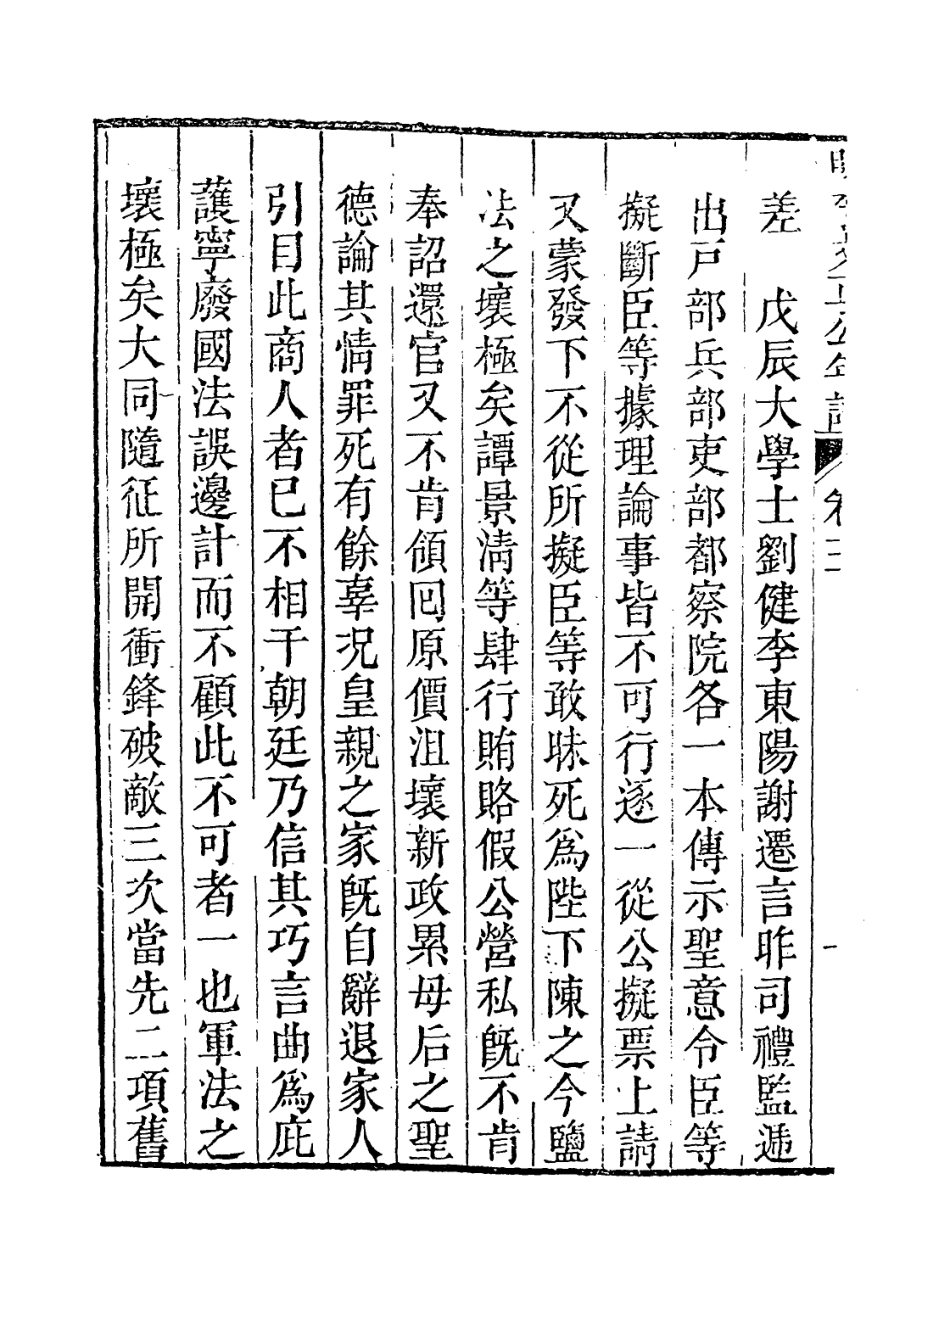 差　戊辰大學士劉健李東陽謝遷言昨司禮監遞
出戸部兵部吏部都察院各一本傳示聖意令臣等
擬斷臣等據理論事皆不可行逐一從公擬票上請
又蒙發下不從所擬臣等敢昧死爲陛下陳之今鹽
法之壞極矣譚景淸等肆行賄賂假公營私旣不肯
奉詔還官又不肯領囘原價沮壞新政累母后之聖
德論其情罪死有餘辜况皇親之家旣自辭退家人
引目此商人者已不相干朝廷乃信其巧言曲爲庇
護寧廢國法誤邊計而不顧此不可者一也軍法之
壞極矣大同隨征所開衝鋒破敵三次當先二項舊